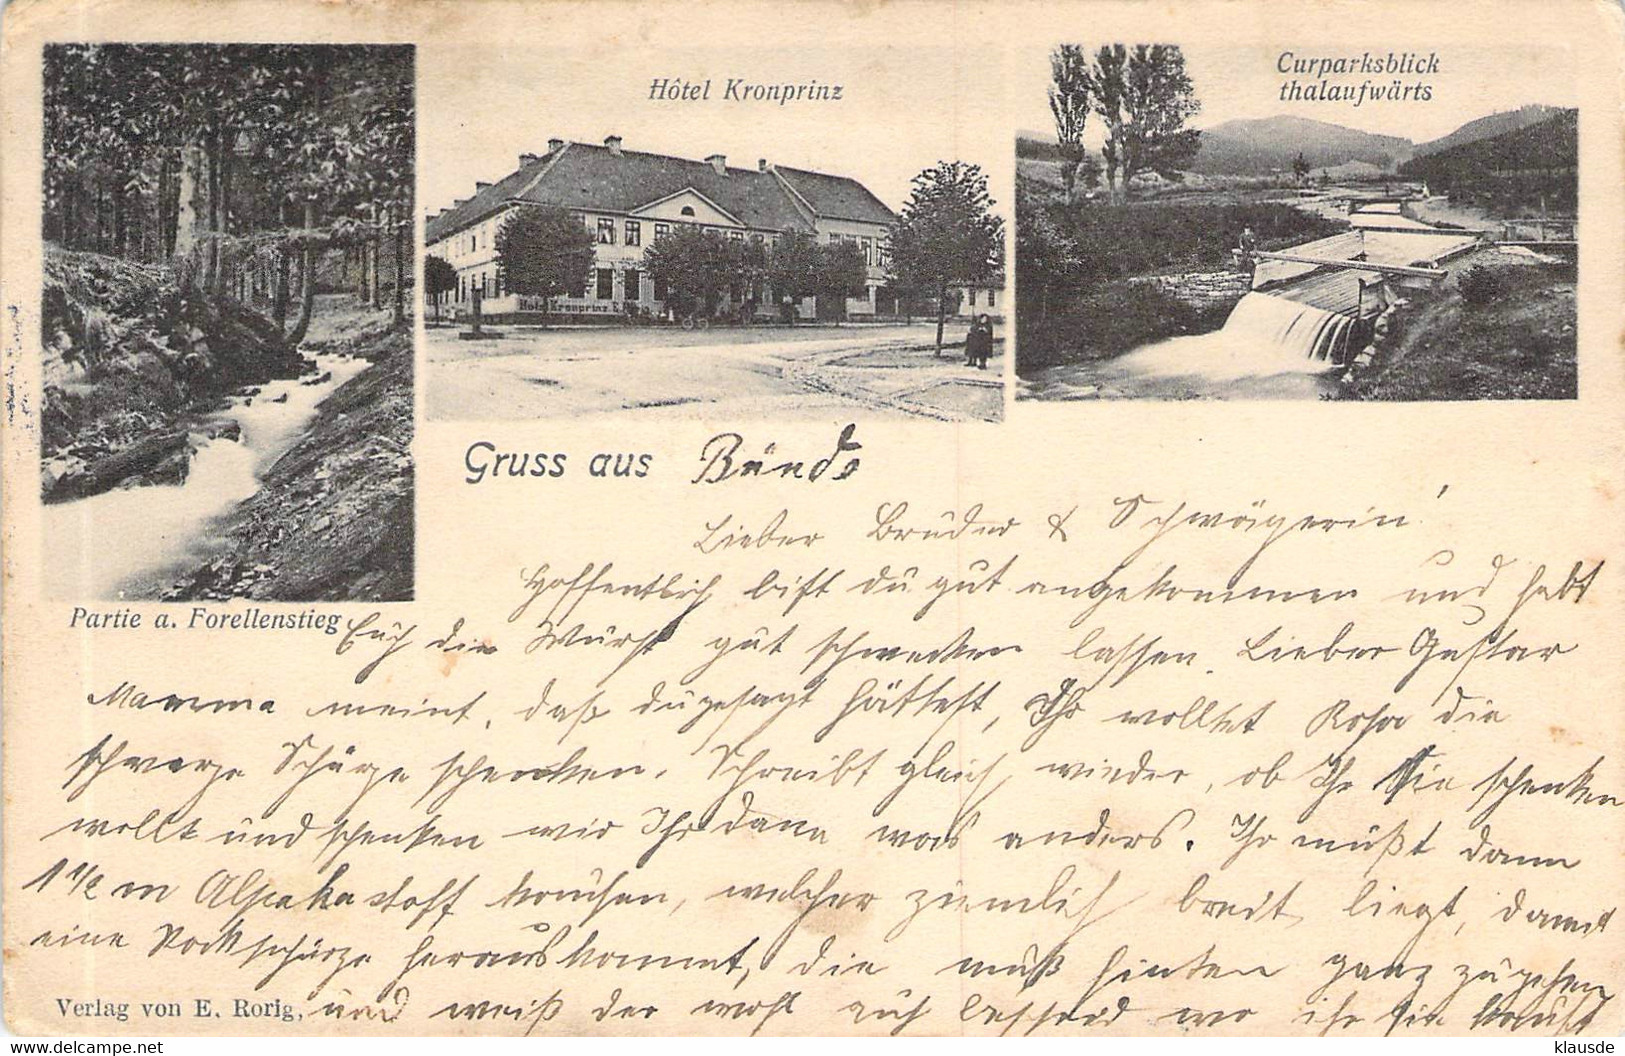 Hôtel Kronprinz
Curparksblick
thalaufwärts
Hotel Kronprinz
Partie a. Forellenstieg
Gruss aus Bünde
Lieber Bruder & Schwägerin!
Hoffentlich bist du gut angekommen und habt
Euch die Wurst gut schmecken lassen. Lieber Gustav
Mamma meint, daß du gesagt hättest, Ihr wolltet Rosa die
schwarze Schürze schenken. Schreibt gleich wieder, ob Ihr Sie schenken
wollt und schenken wir Ihr dann was anders. Ihr müßt dann
1 1/2 m Alpaka stoff kaufen, welcher ziemlich breit liegt, damit
eine Rockschürze herauskommt, die muß hinten ganz zugehen
Verlag von E. Rorig, und weiß der wohl auch wo ihr sie kauft
klausde